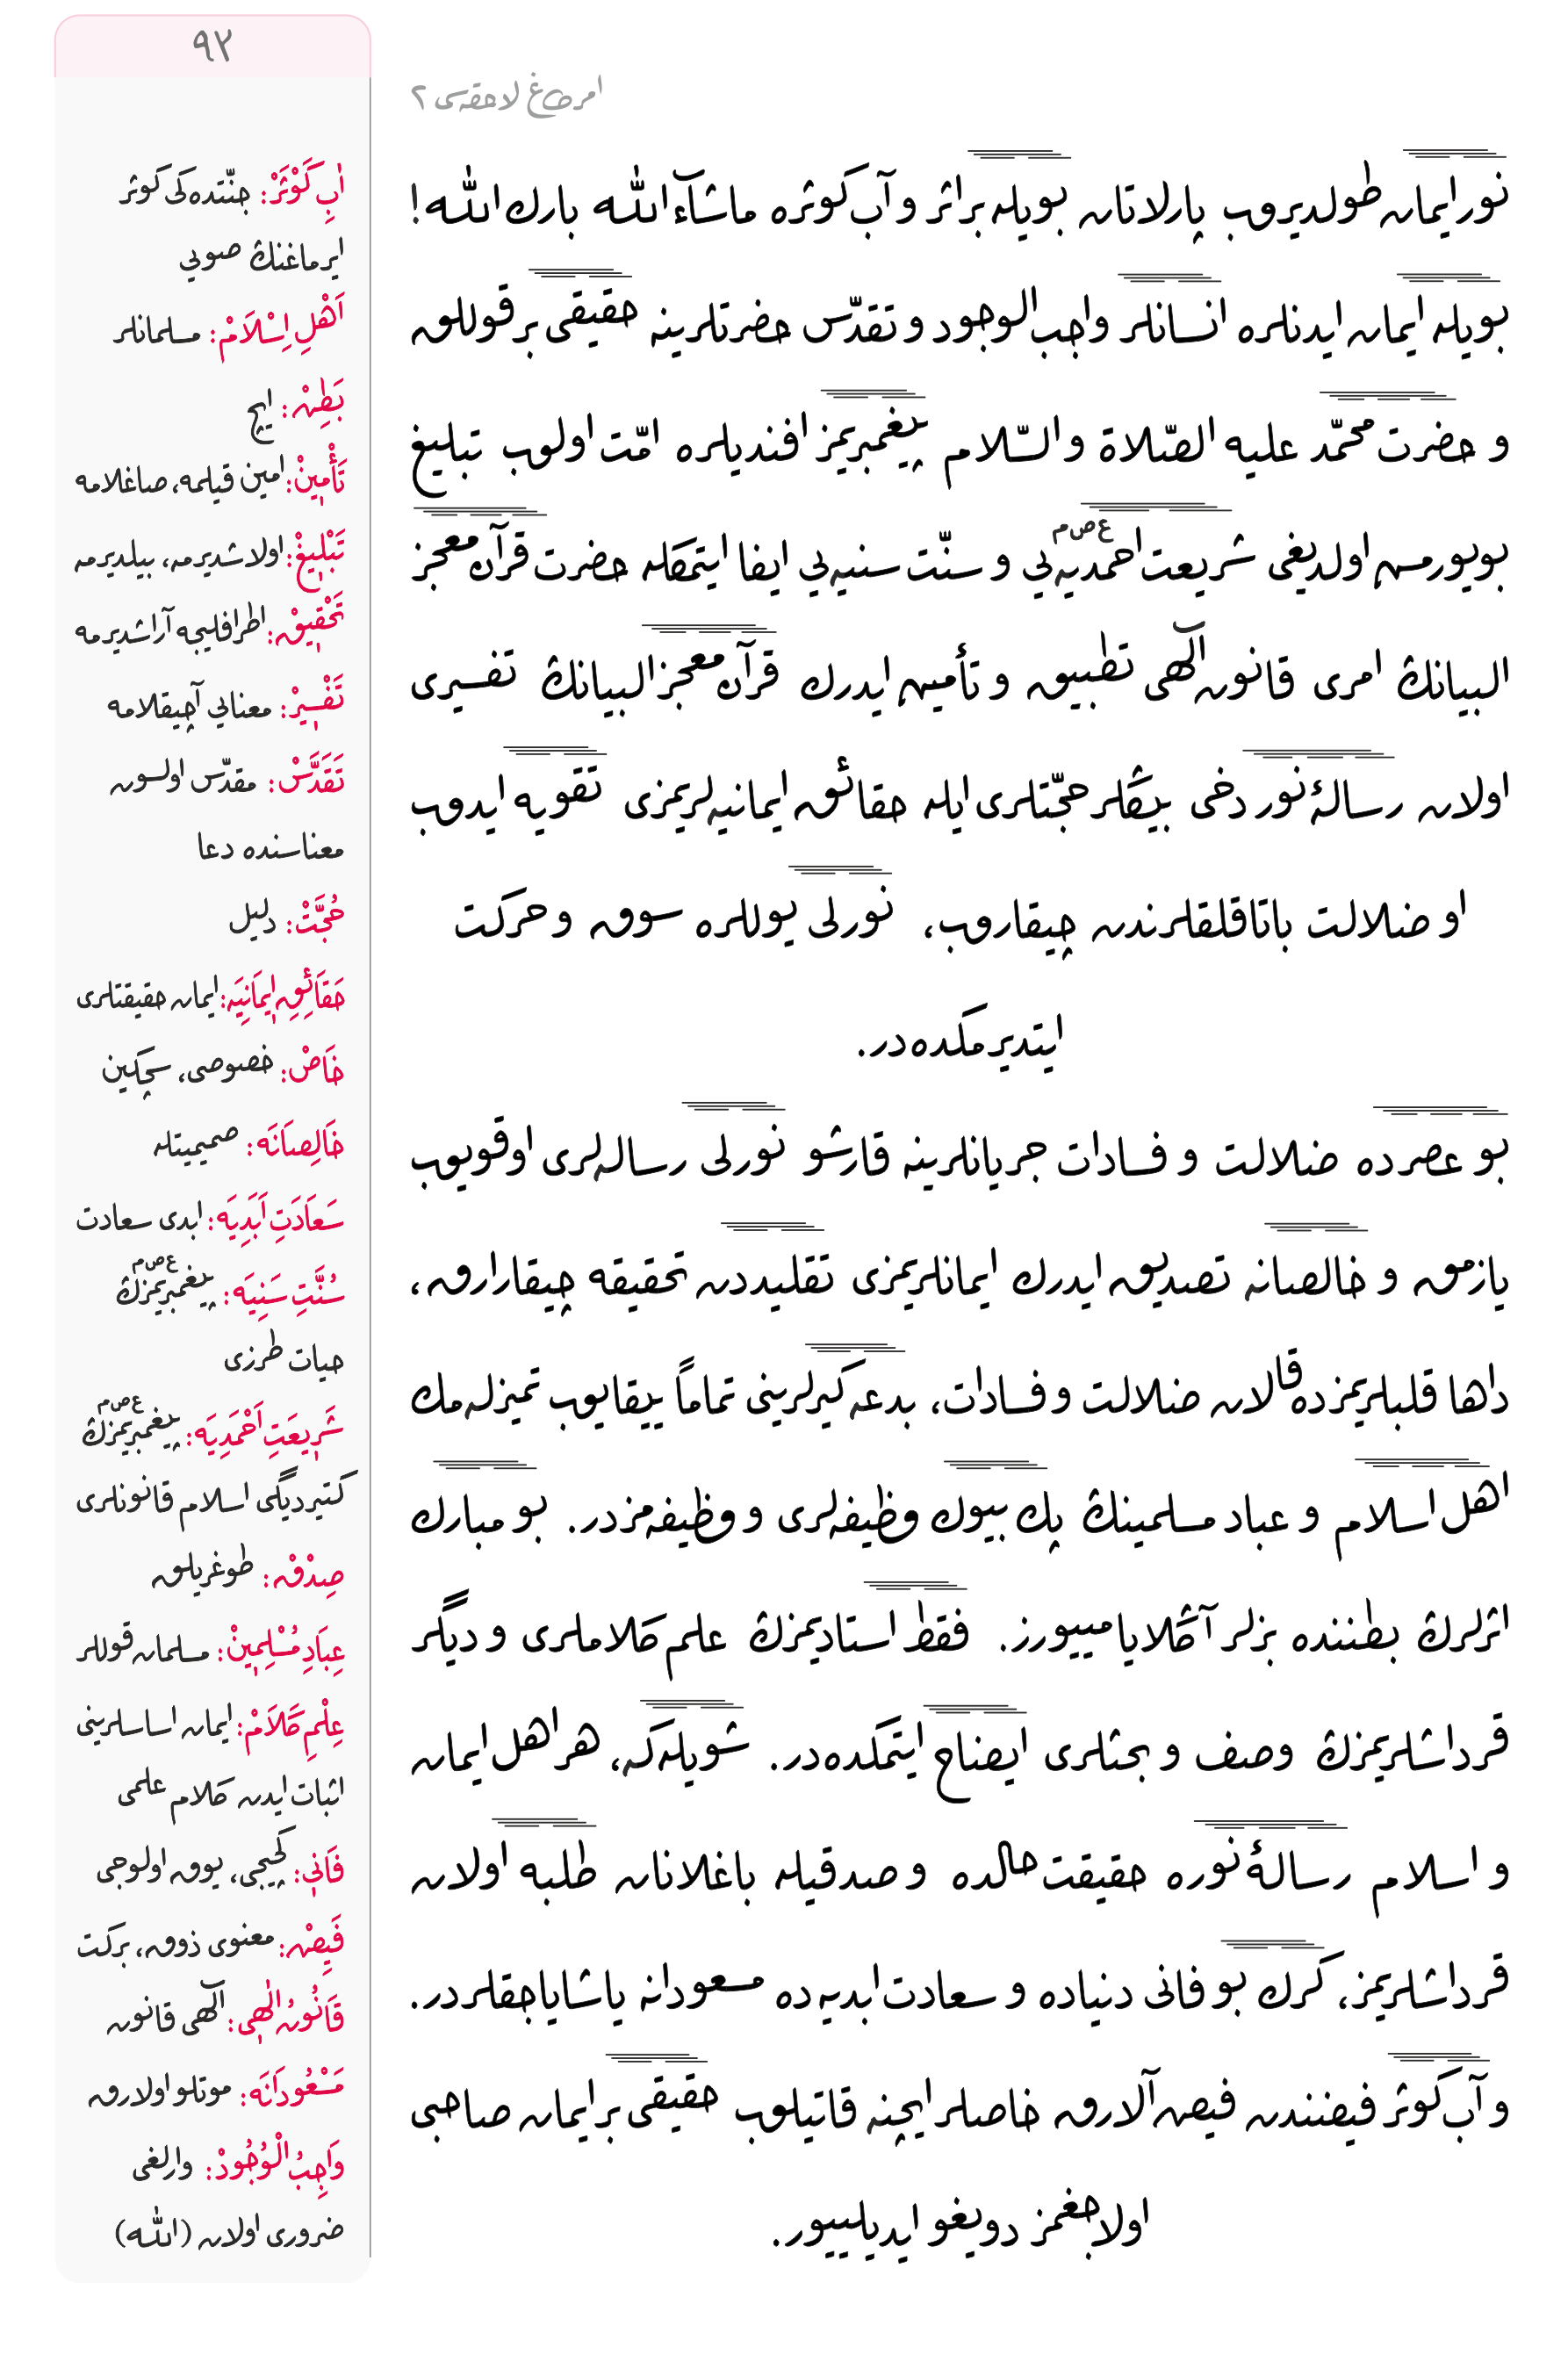 ٩٢
امرطاغ لاحقه‌سی ٢
نور ایمان طولدیروب پارلاتان بویله بر اثر و آب كوثره ماشآء الله بارك الله!
بویله ایمان ایدنلره انسانلر واجب الوجود و تقدّس حضرتلرینه حقیقی بر قوللق
و حضرت محمّد علیه الصّلاة والسّلام پیغمبریمز افندیلره امّت اولوب تبلیغ
بویورمش اولدیغی شریعت احمدیه‌یی ع‌ص‌م و سنّت سنیه‌یی ایفا ایتمكله حضرت قرآن معجز
البیانڭ امری قانون الٓهی تطبیق و تأمین ایدرك قرآن معجز البیانڭ تفسیری
اولان رسالۀ نور دخی بیڭلر حجّتلری ایله حقائق ایمانیه‌لریمزی تقویه ایدوب
او ضلالت باتاقلقلرندن چیقاروب، نورلی یوللره سوق و حركت
ایتدیرمكده‌در.
بو عصرده ضلالت و فسادات جریانلرینه قارشو نورلی رساله‌لری اوقویوب
یازمق و خالصانه تصدیق ایدرك ایمانلریمزی تقلیددن تحقیقه چیقارارق،
داها قلبلریمزده قالان ضلالت و فسادات، بدعه كیرلرینی تماماً ییقایوب تمیزله‌مك
اهل اسلام و عباد مسلمینڭ پك بیوك وظیفه‌لری و وظیفه‌مزدر. بو مبارك
اثرلرڭ بطننده بزلر آڭلایامییورز. فقط استادیمزڭ علم كلاملری و دیگر
قرداشلریمزڭ وصف و بحثلری ایضاح ایتمكده‌در. شویله‌كه، هر اهل ایمان
و اسلام رسالۀ نوره حقیقت حالده و صدقیله باغلانان طلبه اولان
قرداشلریمز، كرك بو فانی دنیاده و سعادت ابدیه‌ده مسعودانه یاشایاجقلردر.
و آب كوثر فیضندن فیض آلارق خاصلر ایچنه قاتیلوب حقیقی بر ایمان صاحبی
اولاجغمز دویغو ایدیلییور.
اٰبِ كَوْثَرْ: جنّتده‌كی كوثر
ایرماغنڭ صویی
اَهْلِ اِسْلَامْ: مسلمانلر
بَطِنْ: ایچ
تَأْمِینْ: امین قیلمه، صاغلامه
تَبْلِیغْ: اولاشدیرمه، بیلدیرمه
تَحْقِیقْ: اطرافلیجه آراشدیرمه
تَفْسِیرْ: معنایی آچیقلامه
تَقَدَّسْ: مقدّس اولسون
معناسنده دعا
حُجَّتْ: دلیل
حَقَائِقِ اِیمَانِیَه: ایمان حقیقتلری
خَاصْ: خصوصی، سچكین
خَالِصَانَه: صمیمیتله
سَعَادَتِ اَبَدِیَه: ابدی سعادت
سُنَّتِ سَنِیَه: پیغمبریمزڭ ع‌ص‌م
حیات طرزی
شَرِیعَتِ اَحْمَدِیَه: پیغمبریمزڭ ع‌ص‌م
كتیردیگی اسلام قانونلری
صِدْقْ: طوغریلق
عِبَادِ مُسْلِمِینْ: مسلمان قوللر
عِلْمِ كَلَامْ: ایمان اساسلرینی
اثبات ایدن كلام علمی
فَانِی: كچیجی، یوق اولوجی
فَیِضْ: معنوی ذوق، بركت
قَانُونُ اِلٰهِی: الٓهی قانون
مَسْعُودَانَه: موتلو اولارق
وَاجِبُ الْوُجُودْ: وارلغی
ضروری اولان (الله)